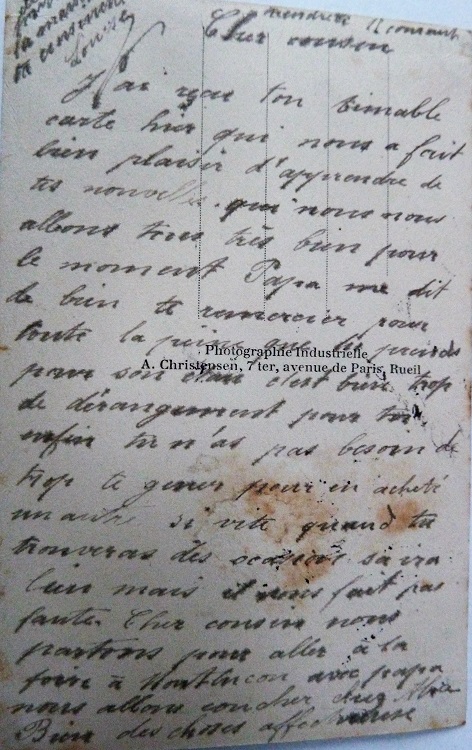 Louise
vendredi 12 courant
Cher cousin
J'ai reçu ton aimable
carte hier qui nous a fait
bien plaisir d'apprendre de
tes nouvelles. qui nous nous
allons tous très bien pour
le moment Papa me dit
de bien te remercier pour
toute la peine que tu prends
pour son c'est bien trop
de dérangement pour toi
enfin tu n'as pas besoin de
trop te gener pour en acheté
un autre si vite quand tu
trouveras des occasions sa ira
bien mais il nous fait pas
faute. Cher cousin nous
partons pour aller à la
foire à Montluçon avec papa
nous allons coucher chez
Bien des choses affectueuse
Photographie Industrielle
A. Christensen, 7 ter, avenue de Paris, Rueil